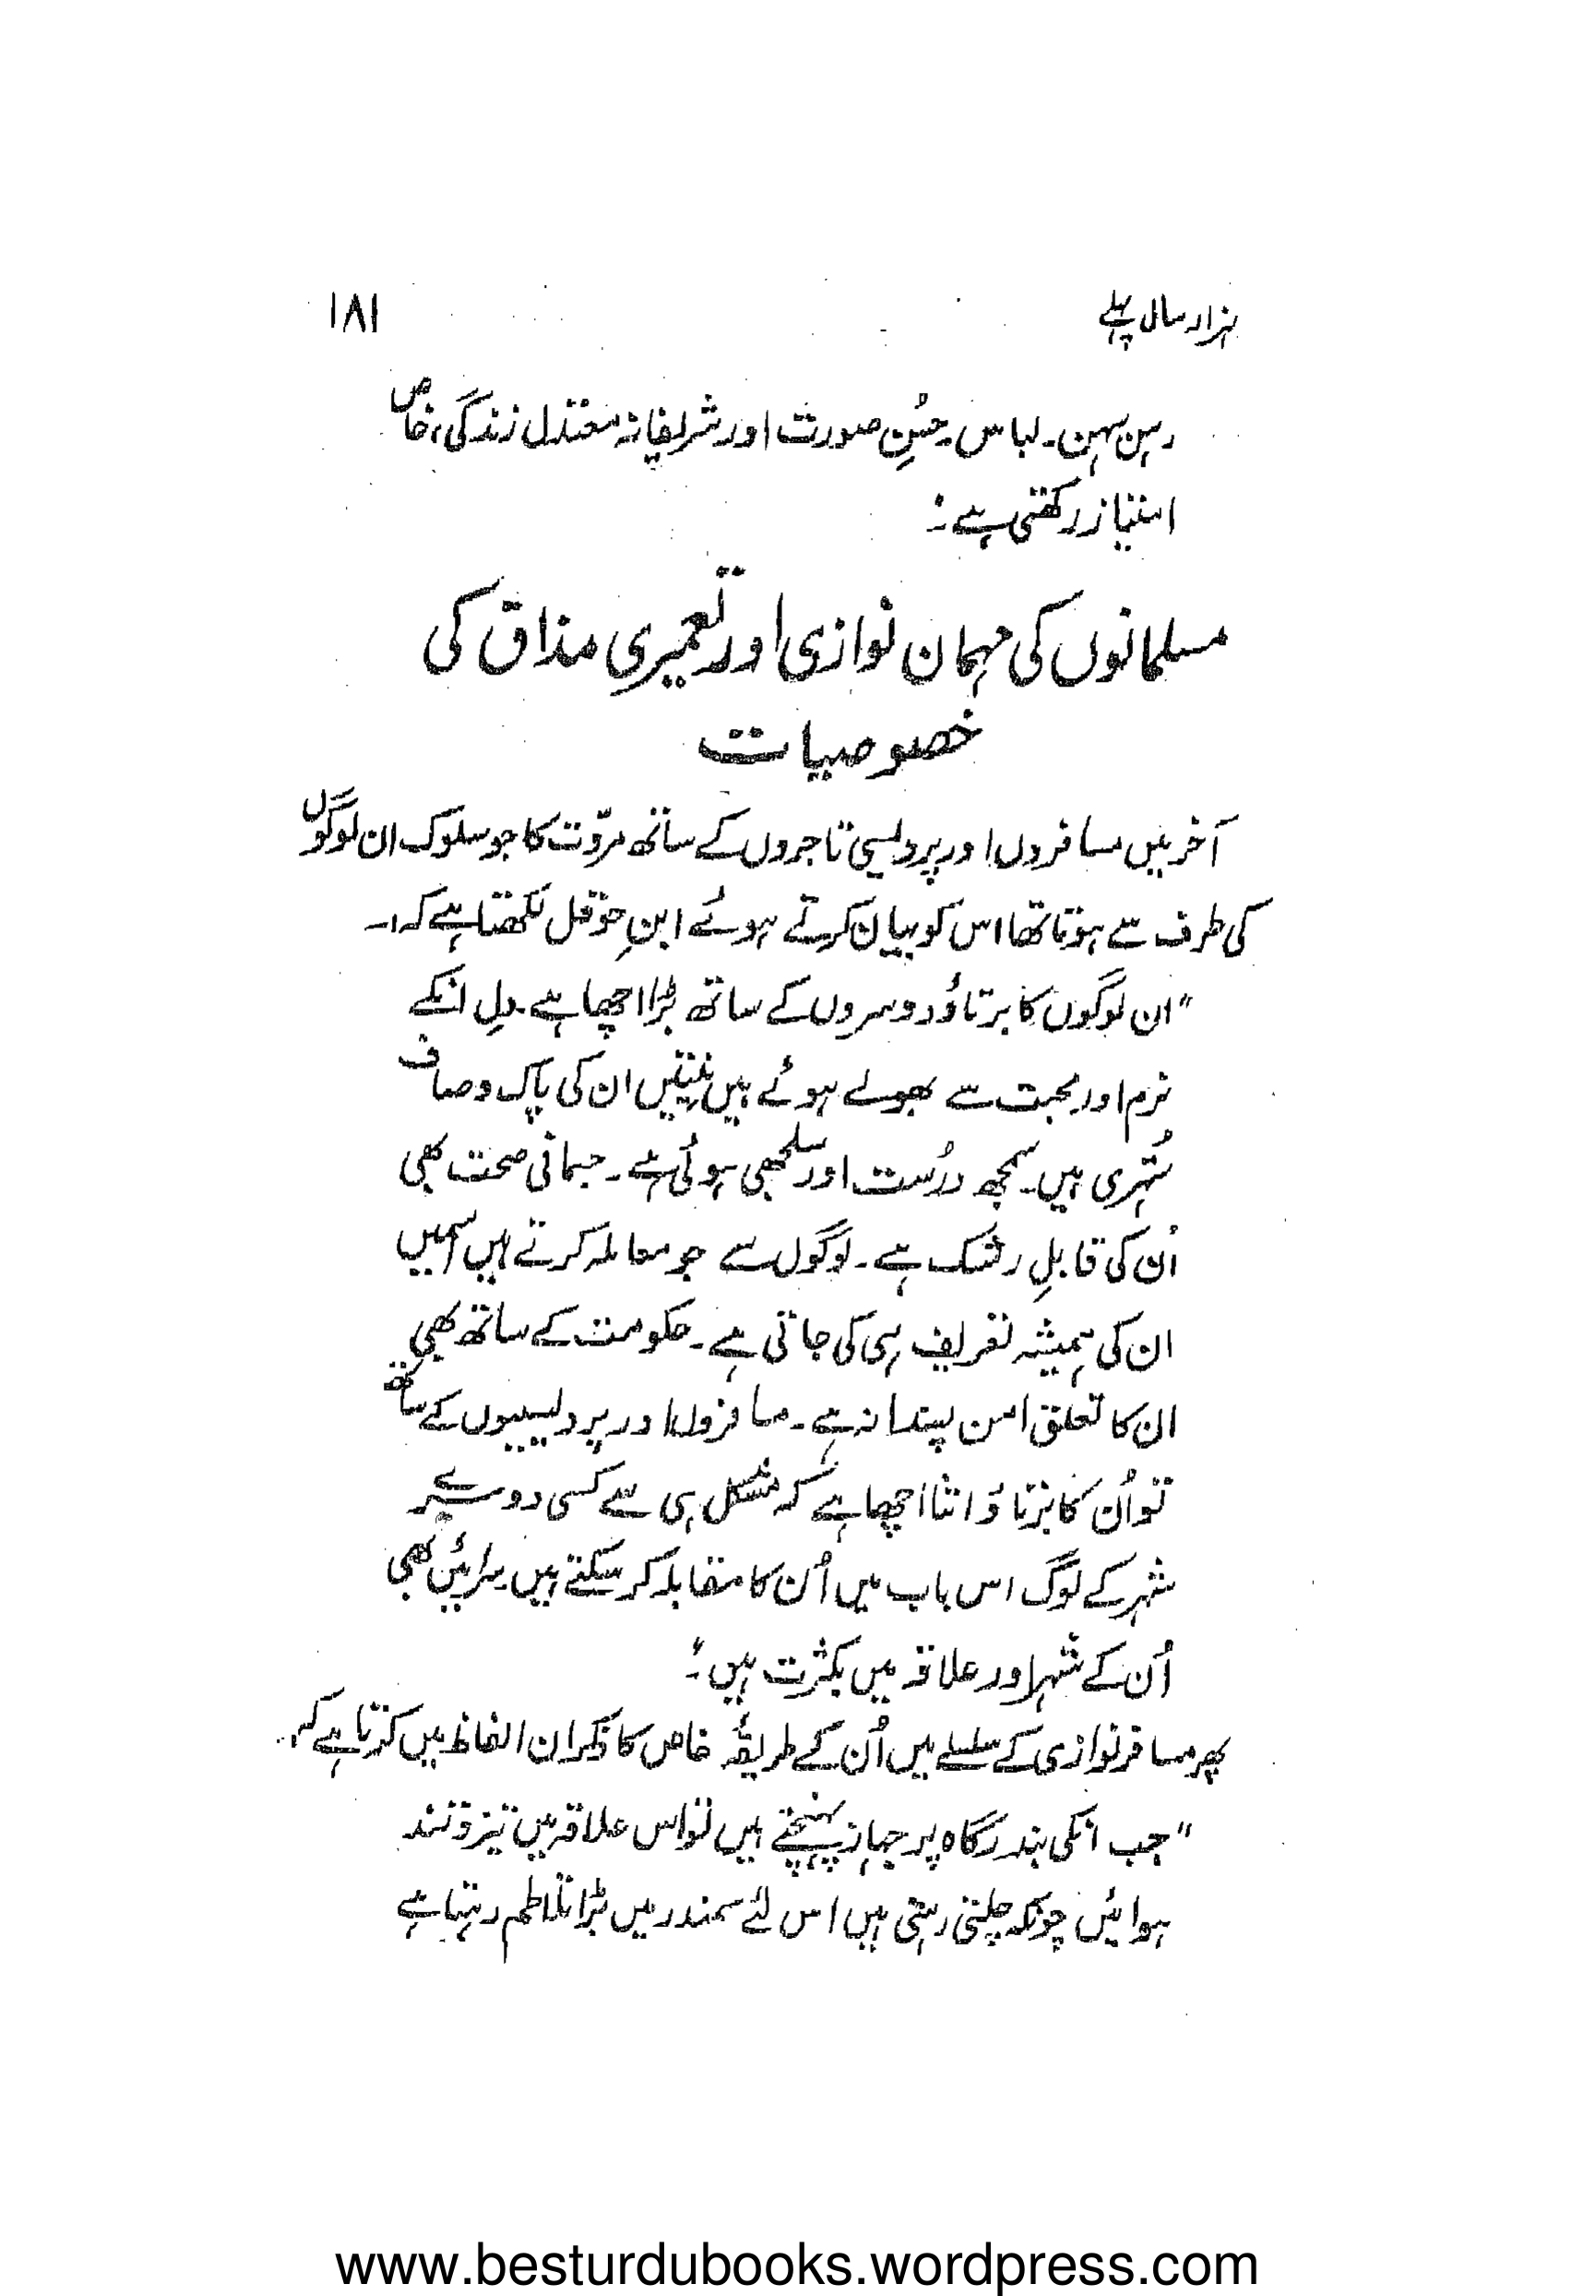 ہزار سال پہلے ۱۸۱
رہن سہن۔ لباس۔ حسُنِ صورت اور شریفانہ معتدل زندگی، خاص
امتیاز رکھتی ہے:
مسلمانوں کی مہمان نوازی اور تعمیری مذاق کی
خصوصیات
آخر میں مسافروں اور پردیسی تاجروں کے ساتھ مروّت کا جو سلوک ان لوگوں
کی طرف سے ہوتا تھا اس کو بیان کرتے ہوئے ابنِ حوقل لکھتا ہے کہ:۔
"ان لوگوں کا برتاؤ دوسروں کے ساتھ بڑا اچھا ہے۔ دل انکے
نرم اور محبت سے بھولے ہوئے ہیں نیتیں ان کی پاک و صاف
سُتہری ہیں۔ سمجھ درُست اور سلجھی ہوئی ہے۔ جسمانی صحت بھی
اُن کی قابلِ رشک ہے۔ لوگوں سے جو معاملہ کرتے ہیں اسمیں
ان کی ہمیشہ تعریف ہی کی جاتی ہے۔ حکومت کے ساتھ بھی
ان کا تعلق امن پسندانہ ہے۔ مسافروں اور پردیسیوں کے ساتھ
تو اُن کا برتاؤ اتنا اچھا ہے کہ مشکل ہی سے کسی دوسرے
شہر کے لوگ اس باب میں اُن کا مقابلہ کر سکتے ہیں سرائیں بھی
اُن کے شہر اور علاقہ میں بکثرت ہیں:
پھر مسافر نوازی کے سلسلے میں اُن کے طریقۂ خاص کا ذکر ان الفاظ میں کرتا ہے کہ:۔
"جب انکی بندرگاہ پر جہاز پہنچتے ہیں تو اس علاقہ میں تیز و تند
ہوائیں چونکہ چلتی رہتی ہیں اس لئے سمندر میں بڑا تلاطم رہتا ہے
www.besturdubooks.wordpress.com